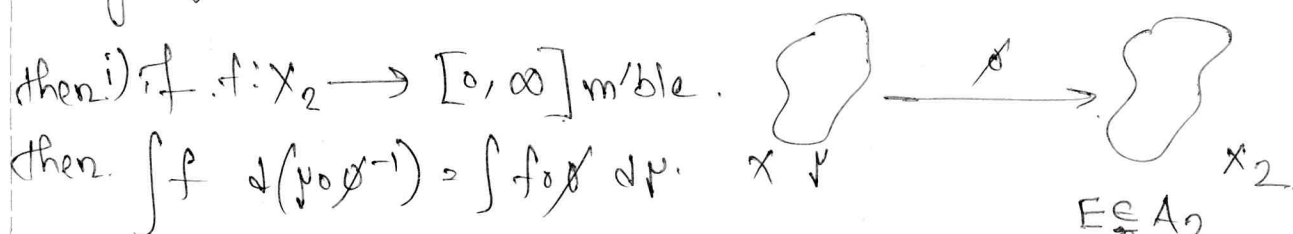 then i) if f: X₂ → [0, ∞] m'ble.
then. ∫ f d(μ∘φ⁻¹) = ∫ f∘φ dμ.
φ
X μ
X₂
E ⊆ A₂